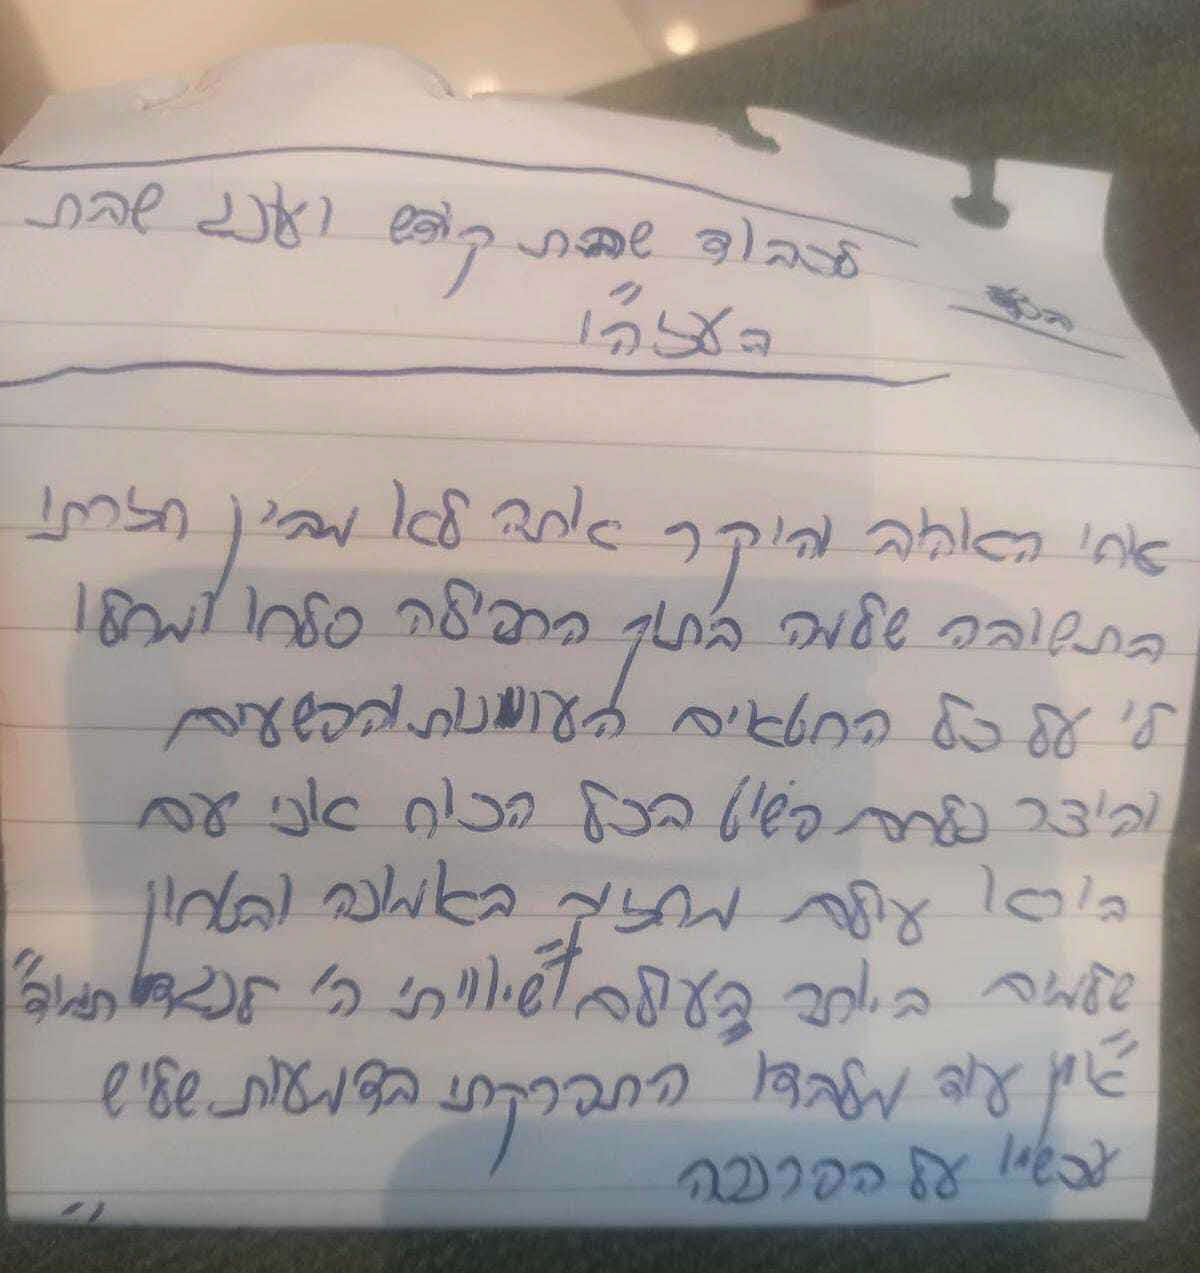 לכבוד שבת קודש ועונג שבת
בעזה"י
אחי האהוב והיקר אתה לא מבין חזרתי
בתשובה שלמה בתוך התפילה סלחו ומחלו
לי על כל החטאים העוונות והפשעים
והיצר נלחם פשוט בכל הכוח אני עם
בורא עולם מחזיק באמונה ובטחון
שלמים ביותר בעולם "שיוויתי ה' לנגדי תמיד"
"אין עוד מלבדו" התפרקתי בדמעות שליש
עכשיו על הפרוכת